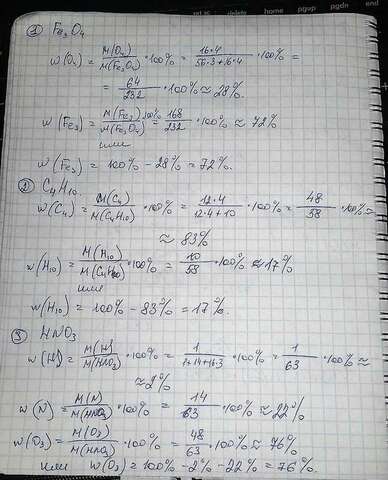 ① Fe₃O₄
w(O₄) = M(O₄)/M(Fe₃O₄) · 100% = 16·4/(56·3+16·4) · 100% =
= 64/232 · 100% ≈ 28%.
w(Fe₃) = M(Fe₃)·100%/M(Fe₃O₄) = 168/232 · 100% ≈ 72%
или
w(Fe₃) = 100% - 28% = 72%.
② C₄H₁₀.
w(C₄) = M(C₄)/M(C₄H₁₀) · 100% = 12·4/(12·4+10) · 100% = 48/58 · 100% ≈
≈ 83%
w(H₁₀) = M(H₁₀)/M(C₄H₁₀) · 100% = 10/58 · 100% ≈ 17%
или
w(H₁₀) = 100% - 83% = 17%.
③ HNO₃
w(H) = M(H)/M(HNO₃) · 100% = 1/(1+14+16·3) · 100% = 1/63 · 100% ≈
≈ 2%
w(N) = M(N)/M(HNO₃) · 100% = 14/63 · 100% ≈ 22%
w(O₃) = M(O₃)/M(HNO₃) · 100% = 48/63 · 100% ≈ 76%
или w(O₃) = 100% - 2% - 22% = 76%.
delete home pgup pgdn end